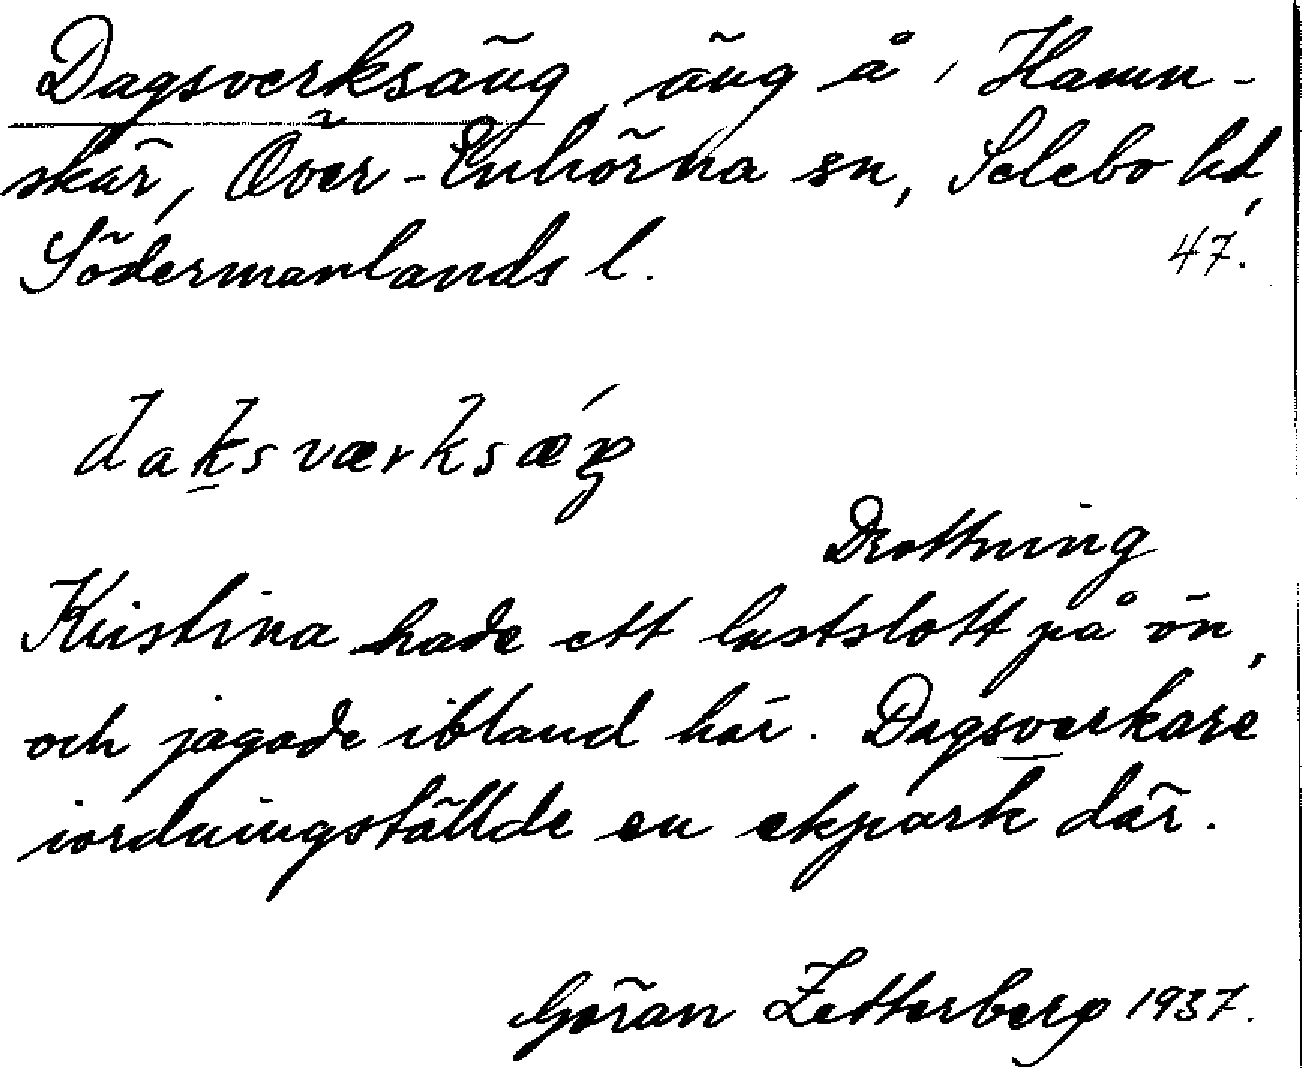 Dagsverksäng, äng å, Hamn-
skär, Över-Enhörna sn, Selebo hd,
Södermanlands l. 47.
daksværksæ´ŋ
Drottning
Kristina hade ett lustslott på ön,
och jagade ibland här. Dagsverkare
iordningställde en ekpark där.
Göran Zetterberg 1937.